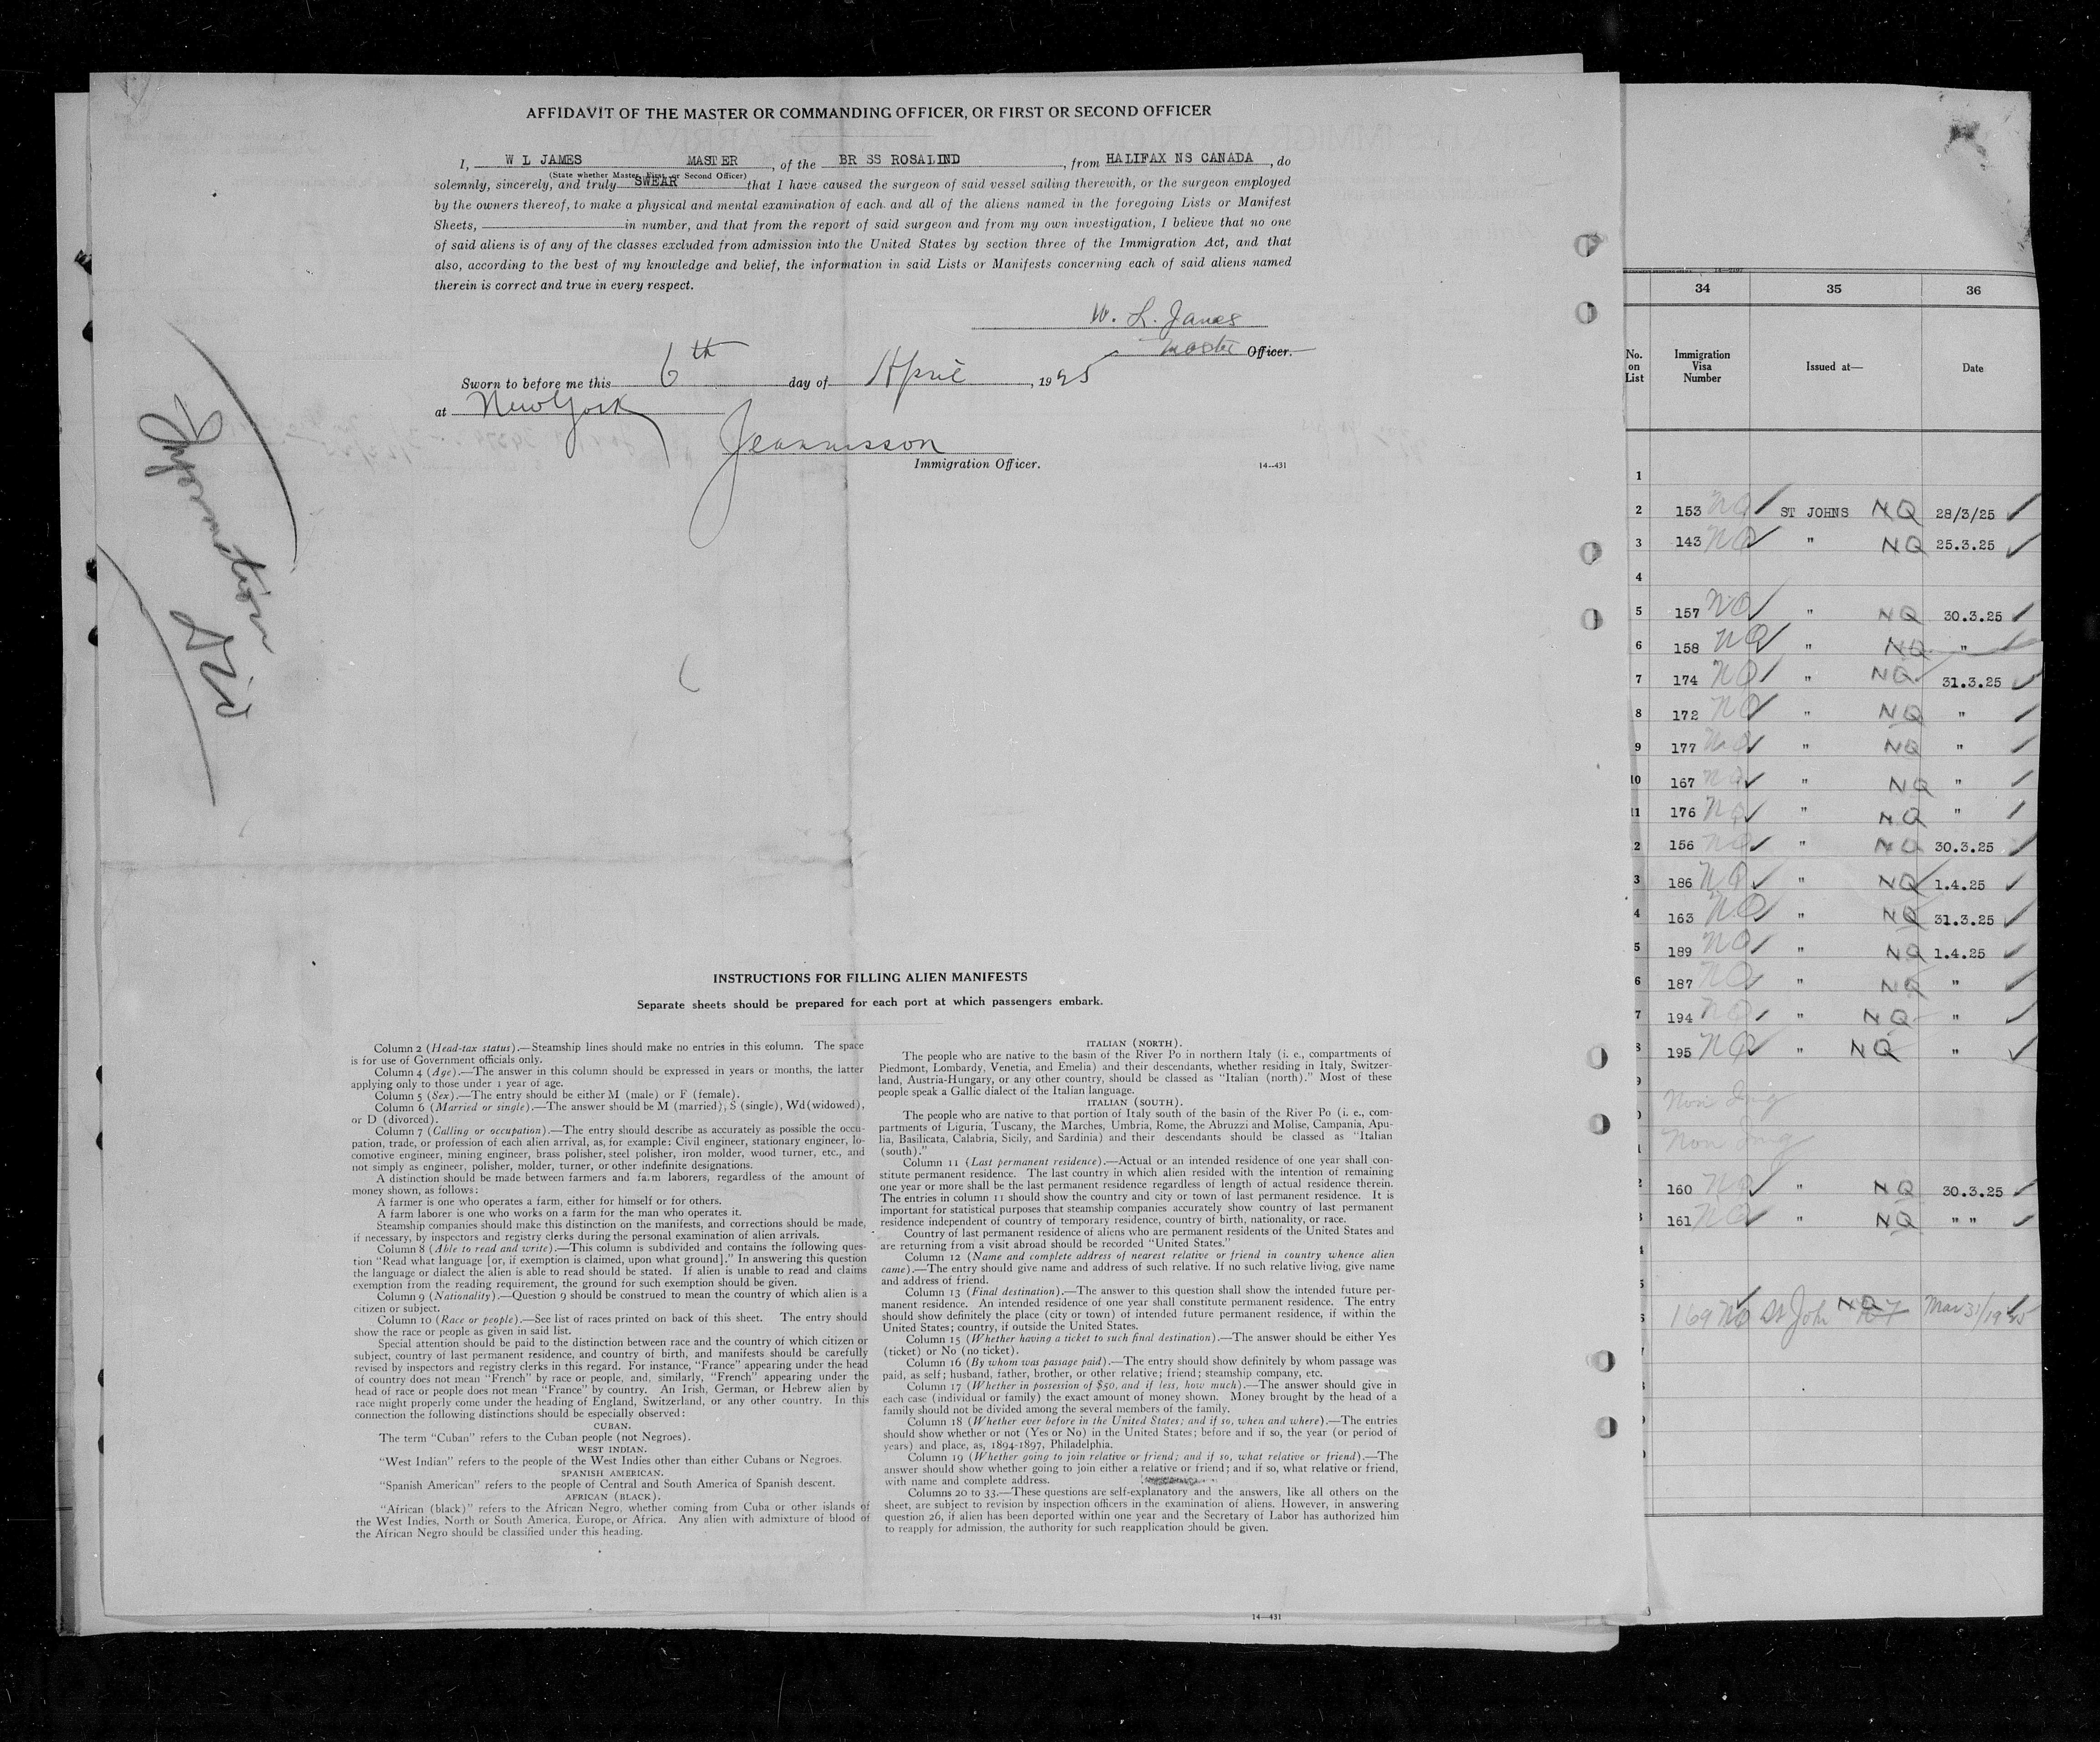 AFFIDAVIT OF THE MASTER OR COMMANDING OFFICER, OR FIRST OR SECOND OFFICER
I, W L JAMES MASTER, of the BR SS ROSALIND, from HALIFAX NS CANADA, do
(State whether Master, First, or Second Officer)
solemnly, sincerely, and truly SWEAR that I have caused the surgeon of said vessel sailing therewith, or the surgeon employed
by the owners thereof, to make a physical and mental examination of each and all of the aliens named in the foregoing Lists or Manifest
Sheets, in number, and that from the report of said surgeon and from my own investigation, I believe that no one
of said aliens is of any of the classes excluded from admission into the United States by section three of the Immigration Act, and that
also, according to the best of my knowledge and belief, the information in said Lists or Manifests concerning each of said aliens named
therein is correct and true in every respect.
W. L. James
Master Officer.
Sworn to before me this 6th day of April, 1925
at New York
Immigration Officer.
14—431
Information
INSTRUCTIONS FOR FILLING ALIEN MANIFESTS
Separate sheets should be prepared for each port at which passengers embark.
Column 2 (Head-tax status).—Steamship lines should make no entries in this column. The space
is for use of Government officials only.
Column 4 (Age).—The answer in this column should be expressed in years or months, the latter
applying only to those under 1 year of age.
Column 5 (Sex).—The entry should be either M (male) or F (female).
Column 6 (Married or single).—The answer should be M (married), S (single), Wd(widowed),
or D (divorced).
Column 7 (Calling or occupation).—The entry should describe as accurately as possible the occu-
pation, trade, or profession of each alien arrival, as, for example: Civil engineer, stationary engineer, lo-
comotive engineer, mining engineer, brass polisher, steel polisher, iron molder, wood turner, etc., and
not simply as engineer, polisher, molder, turner, or other indefinite designations.
A distinction should be made between farmers and farm laborers, regardless of the amount of
money shown, as follows:
A farmer is one who operates a farm, either for himself or for others.
A farm laborer is one who works on a farm for the man who operates it.
Steamship companies should make this distinction on the manifests, and corrections should be made,
if necessary, by inspectors and registry clerks during the personal examination of alien arrivals.
Column 8 (Able to read and write).—This column is subdivided and contains the following ques-
tion "Read what language [or, if exemption is claimed, upon what ground]." In answering this question
the language or dialect the alien is able to read should be stated. If alien is unable to read and claims
exemption from the reading requirement, the ground for such exemption should be given.
Column 9 (Nationality).—Question 9 should be construed to mean the country of which alien is a
citizen or subject.
Column 10 (Race or people).—See list of races printed on back of this sheet. The entry should
show the race or people as given in said list.
Special attention should be paid to the distinction between race and the country of which citizen or
subject, country of last permanent residence, and country of birth, and manifests should be carefully
revised by inspectors and registry clerks in this regard. For instance, "France" appearing under the head
of country does not mean "French" by race or people, and, similarly, "French" appearing under the
head of race or people does not mean "France" by country. An Irish, German, or Hebrew alien by
race might properly come under the heading of England, Switzerland, or any other country. In this
connection the following distinctions should be especially observed:
CUBAN.
The term "Cuban" refers to the Cuban people (not Negroes).
WEST INDIAN.
"West Indian" refers to the people of the West Indies other than either Cubans or Negroes.
SPANISH AMERICAN.
"Spanish American" refers to the people of Central and South America of Spanish descent.
AFRICAN (BLACK).
"African (black)" refers to the African Negro, whether coming from Cuba or other islands of
the West Indies, North or South America, Europe, or Africa. Any alien with admixture of blood of
the African Negro should be classified under this heading.
ITALIAN (NORTH).
The people who are native to the basin of the River Po in northern Italy (i. e., compartments of
Piedmont, Lombardy, Venetia, and Emelia) and their descendants, whether residing in Italy, Switzer-
land, Austria-Hungary, or any other country, should be classed as "Italian (north)." Most of these
people speak a Gallic dialect of the Italian language.
ITALIAN (SOUTH).
The people who are native to that portion of Italy south of the basin of the River Po (i. e., com-
partments of Liguria, Tuscany, the Marches, Umbria, Rome, the Abruzzi and Molise, Campania, Apu-
lia, Basilicata, Calabria, Sicily, and Sardinia) and their descendants should be classed as "Italian
(south)."
Column 11 (Last permanent residence).—Actual or an intended residence of one year shall con-
stitute permanent residence. The last country in which alien resided with the intention of remaining
one year or more shall be the last permanent residence regardless of length of actual residence therein.
The entries in column 11 should show the country and city or town of last permanent residence. It is
important for statistical purposes that steamship companies accurately show country of last permanent
residence independent of country of temporary residence, country of birth, nationality, or race.
Country of last permanent residence of aliens who are permanent residents of the United States and
are returning from a visit abroad should be recorded "United States."
Column 12 (Name and complete address of nearest relative or friend in country whence alien
came).—The entry should give name and address of such relative. If no such relative living, give name
and address of friend.
Column 13 (Final destination).—The answer to this question shall show the intended future per-
manent residence. An intended residence of one year shall constitute permanent residence. The entry
should show definitely the place (city or town) of intended future permanent residence, if within the
United States; country, if outside the United States.
Column 15 (Whether having a ticket to such final destination).—The answer should be either Yes
(ticket) or No (no ticket).
Column 16 (By whom was passage paid).—The entry should show definitely by whom passage was
paid, as self; husband, father, brother, or other relative; friend; steamship company, etc.
Column 17 (Whether in possession of $50, and if less, how much).—The answer should give in
each case (individual or family) the exact amount of money shown. Money brought by the head of a
family should not be divided among the several members of the family.
Column 18 (Whether ever before in the United States; and if so, when and where).—The entries
should show whether or not (Yes or No) in the United States; before and if so, the year (or period of
years) and place, as, 1894-1897, Philadelphia.
Column 19 (Whether going to join relative or friend; and if so, what relative or friend).—The
answer should show whether going to join either a relative or friend; and if so, what relative or friend,
with name and complete address.
Columns 20 to 33.—These questions are self-explanatory and the answers, like all others on the
sheet, are subject to revision by inspection officers in the examination of aliens. However, in answering
question 26, if alien has been deported within one year and the Secretary of Labor has authorized him
to reapply for admission, the authority for such reapplication should be given.
14—431
34 35 36
No. on List Immigration Visa Number Issued at— Date
1
2 153 NQ ST JOHNS NQ 28/3/25
3 143 NQ " NQ 25.3.25
4
5 157 NQ " NQ 30.3.25
6 158 NQ " NQ "
7 174 NQ " NQ 31.3.25
8 172 NQ " NQ "
9 177 NQ " NQ "
10 167 NQ " NQ "
11 176 NQ " NQ "
2 156 NQ " NQ 30.3.25
3 186 NQ " NQ 1.4.25
4 163 NQ " NQ 31.3.25
5 189 NQ " NQ 1.4.25
6 187 NQ " NQ "
7 194 NQ " NQ "
8 195 NQ " NQ "
Non Img
Non Img
160 NQ " NQ 30.3.25
161 NQ " NQ " "
169 NQ St John NQ Mar 31/1925